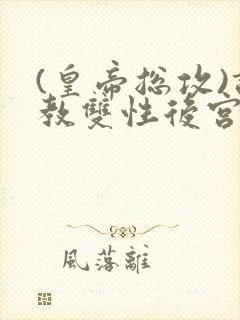 (皇帝总攻)
教雙性後宮
風落離